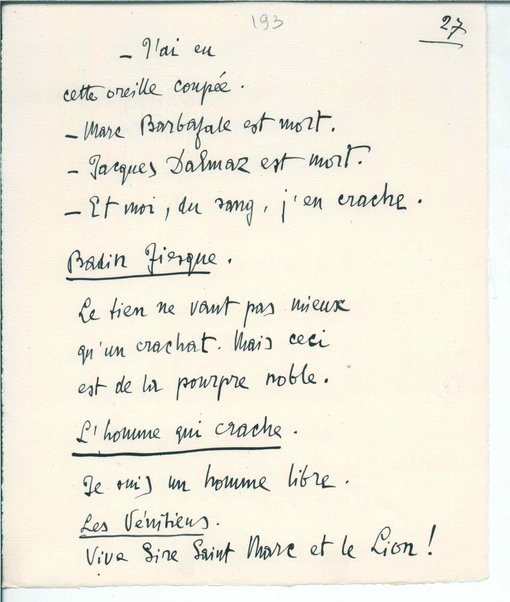 193
27
– J'ai eu
cette oreille coupée.
– Marc Barbafale est mort.
– Jacques Dalmaz est mort.
– Et moi, du sang, j'en crache.
Badin Fiesque.
Le tien ne vaut pas mieux
qu'un crachat. Mais ceci
est de la pourpre noble.
L'homme qui crache.
Je suis un homme libre.
Les Vénitiens.
Viva Sire Saint Marc et le Lion!